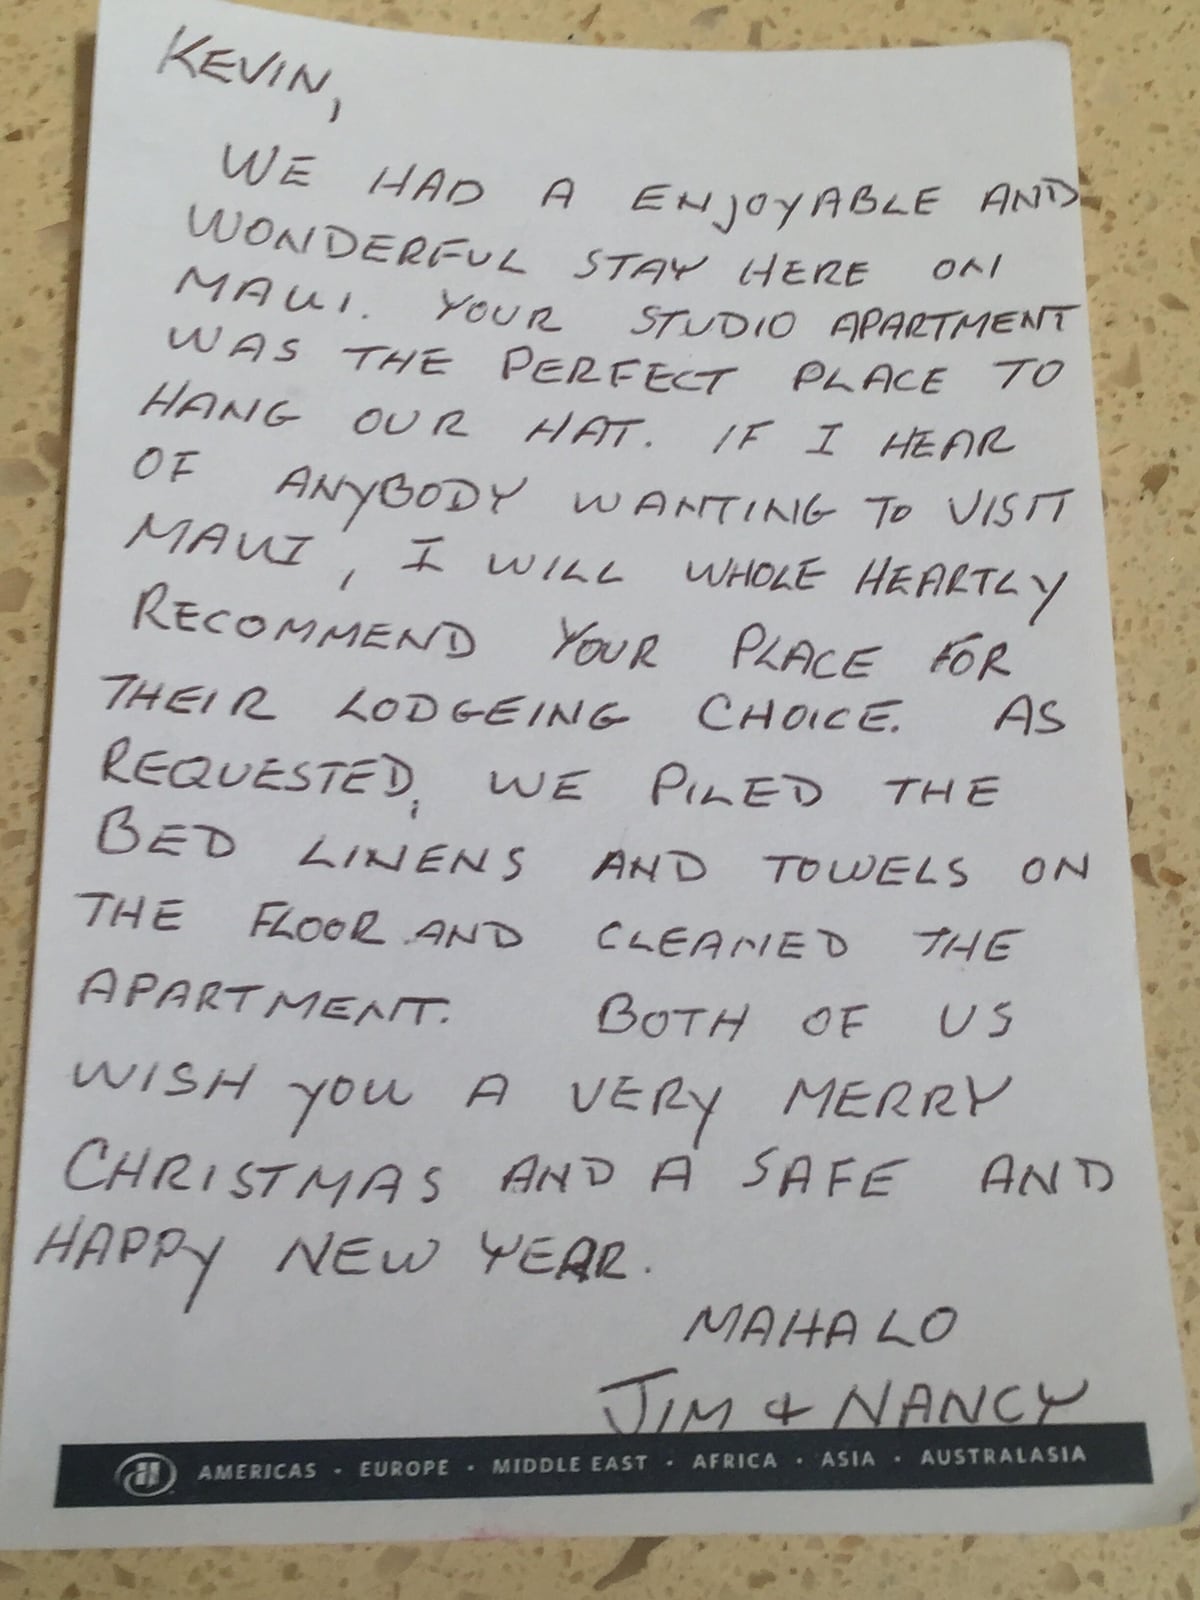 KEVIN,
WE HAD A ENJOYABLE AND
WONDERFUL STAY HERE ON
MAUI. YOUR STUDIO APARTMENT
WAS THE PERFECT PLACE TO
HANG OUR HAT. IF I HEAR
OF ANYBODY WANTING TO VISIT
MAUI, I WILL WHOLE HEARTLY
RECOMMEND YOUR PLACE FOR
THEIR LODGEING CHOICE. AS
REQUESTED, WE PILED THE
BED LINENS AND TOWELS ON
THE FLOOR AND CLEANED THE
APARTMENT. BOTH OF US
WISH YOU A VERY MERRY
CHRISTMAS AND A SAFE AND
HAPPY NEW YEAR.
MAHALO
JIM & NANCY
AMERICAS · EUROPE · MIDDLE EAST · AFRICA · ASIA · AUSTRALASIA